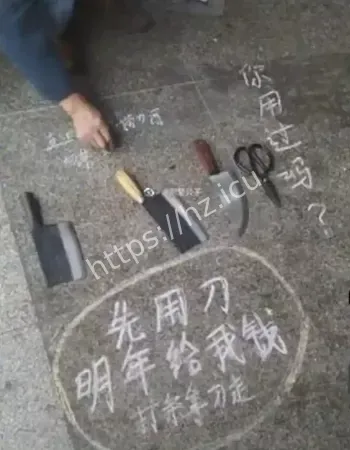 你用过吗?
https://hz.icu
先用刀
明年给我钱
打条拿刀走